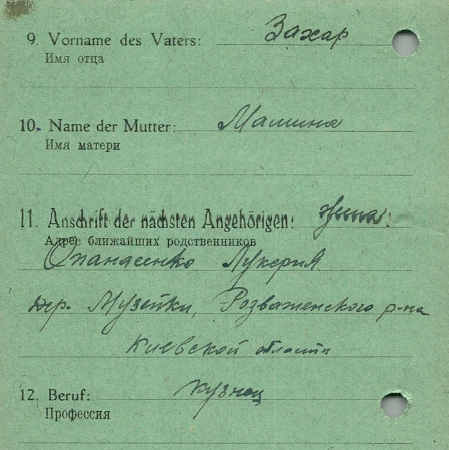 9. Vorname des Vaters: Захар
Имя отца
10. Name der Mutter: Машина
Имя матери
11. Anschrift der nächsten Angehörigen: жена:
Адрес ближайших родственников
Опанасенко Лукерия
дер. Музейки, Розваженского р-на
Киевской области
12. Beruf: кузнец
Профессия